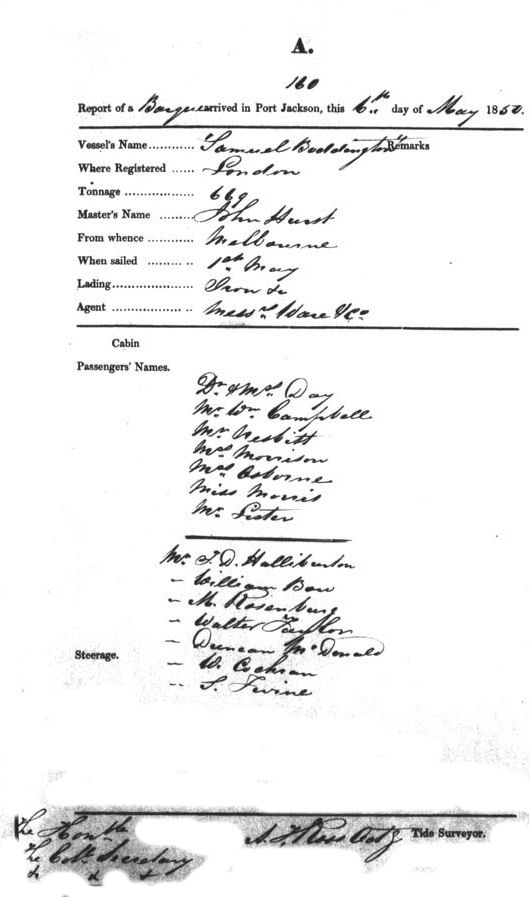 A.
160
Report of a Barque arrived in Port Jackson, this 6th day of May 1850.
Vessel's Name............ Samuel Boddington Remarks
Where Registered ...... London
Tonnage .................. 669
Master's Name ......... John Hurst
From whence ............ Melbourne
When sailed ......... .. 1st May
Lading..................... Iron &c
Agent .................. .. Messrs Ware & Co
Cabin
Passengers' Names.
Dr & Mrs Day
Mr Wm Campbell
Mr Nesbitt
Mrs Morrison
Mrs Osborne
Miss Morris
Mr Lister
Mr T. D. Halliburton
– William Bow
– M. Rosenburg
– Walter Taylor
– Duncan McDonald
Steerage.
– W. Cochran
– S. Irvine
The Honble
The Col. Secretary
& & &
Ross Actg Tide Surveyor.